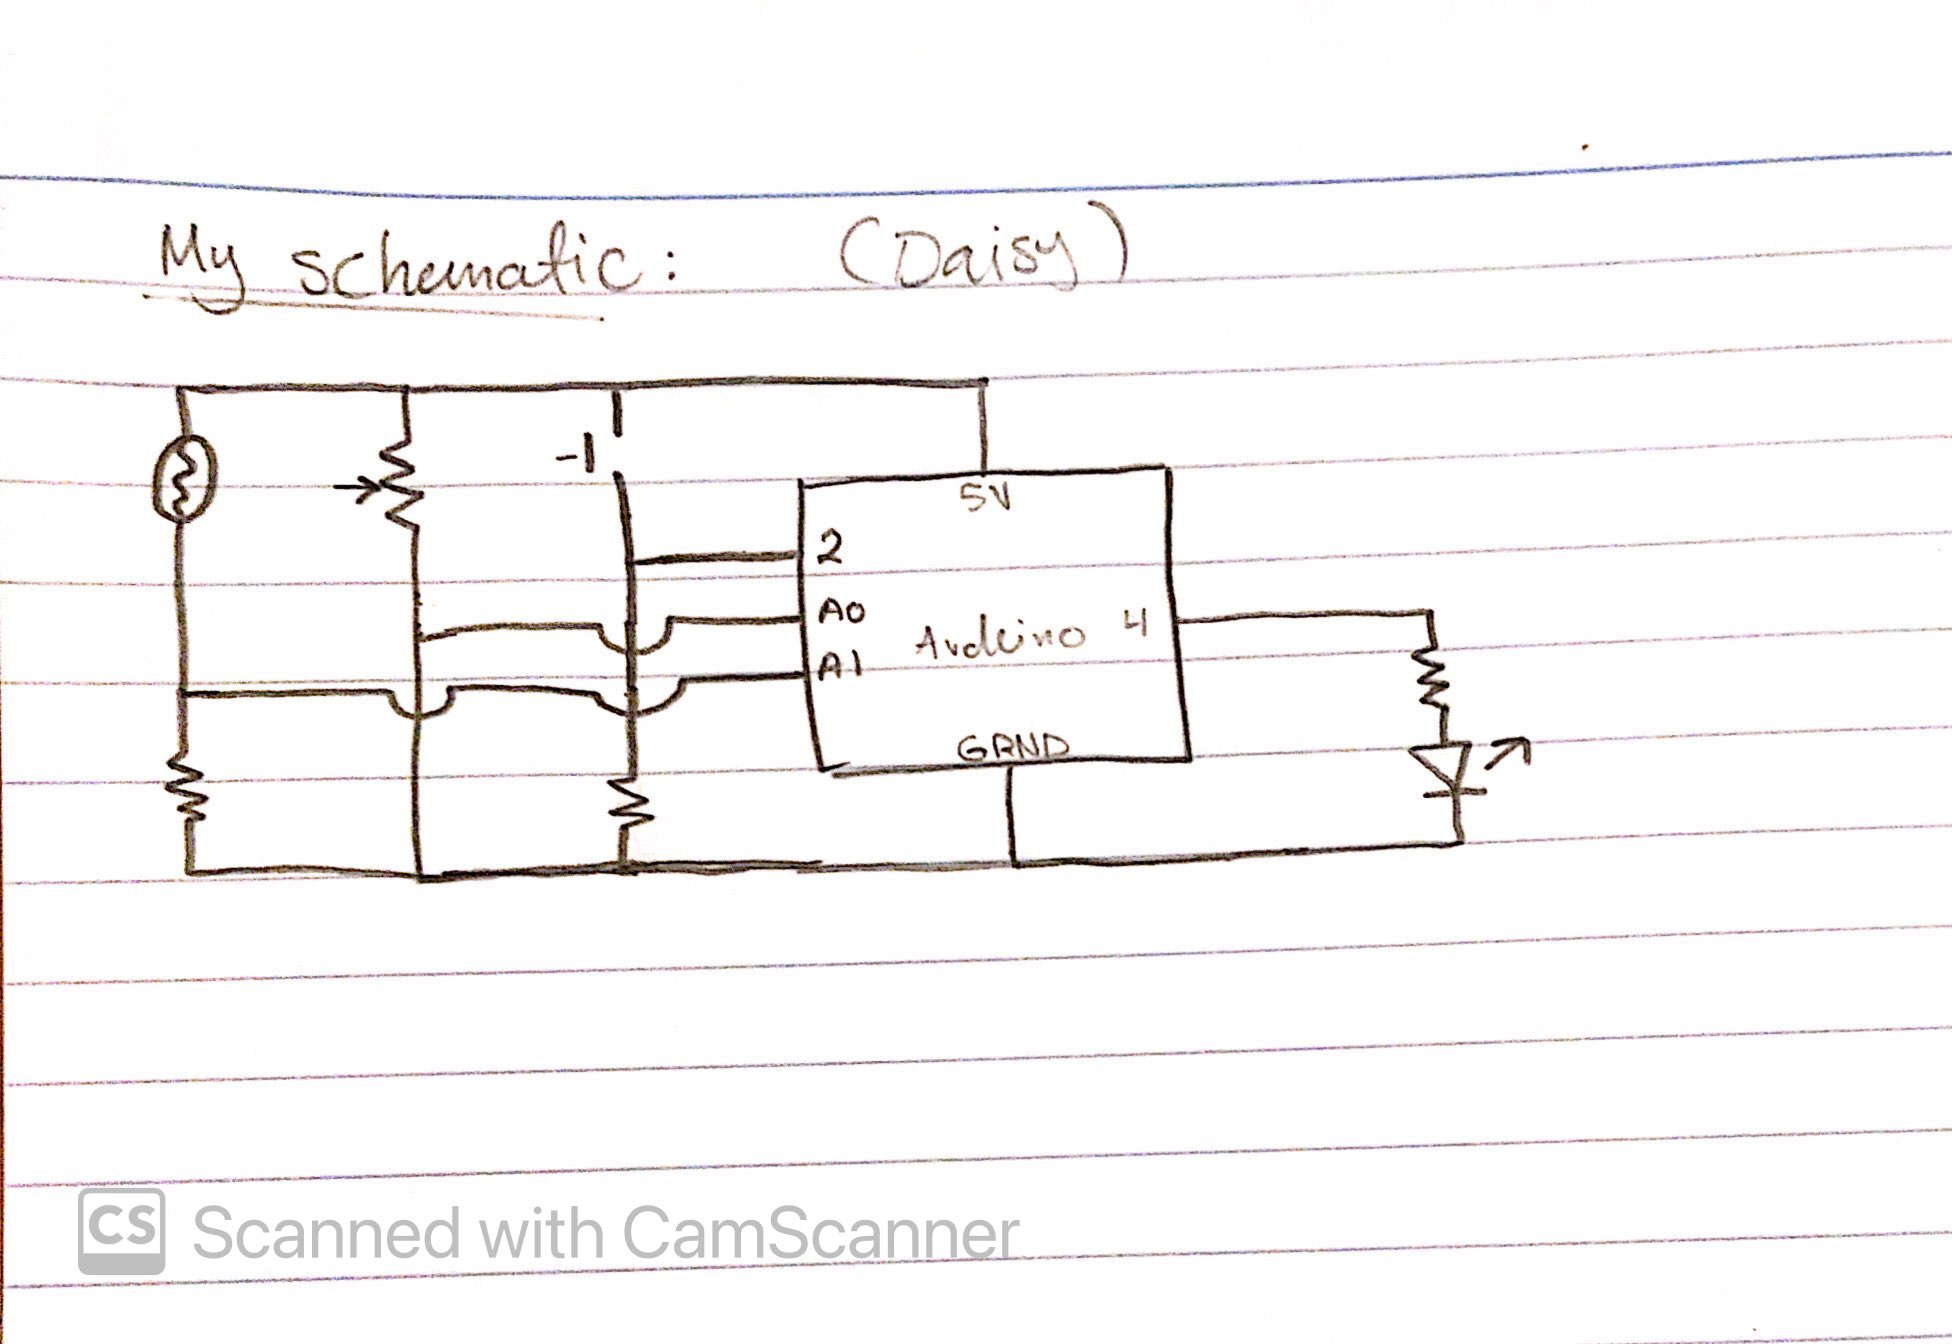 My schematic: (Daisy)
5V
2
A0
Arduino 4
A1
GRND
CS Scanned with CamScanner